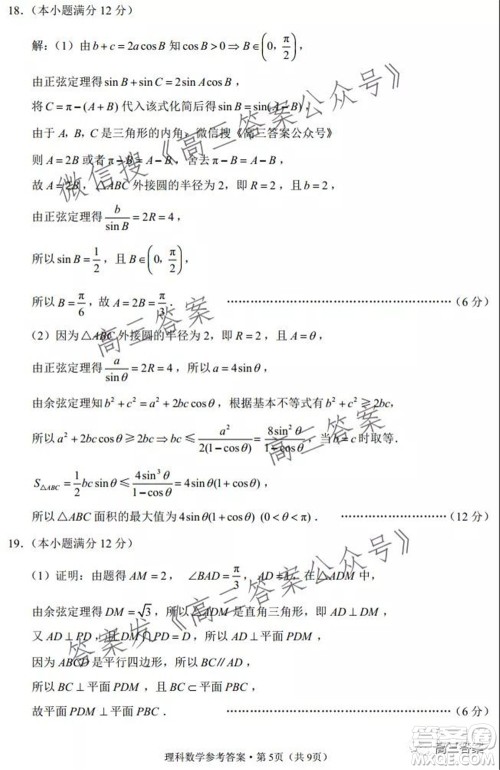 18.（本小题满分 12 分）
解：(1) 由 b + c = 2a cos B 知 cos B > 0 ⇒ B ∈ (0, π/2)，
由正弦定理得 sin B + sin C = 2sin A cos B，
将 C = π − (A + B) 代入该式化简后得 sin B = sin(A − B)，
由于 A，B，C 是三角形的内角，微信搜《高三答案公众号》
则 A = 2B 或者 π − B = A − B，舍去 π − B = A − B，
故 A = 2B，△ABC 外接圆的半径为 2，即 R = 2，且 b = 2，
由正弦定理得 b/sin B = 2R = 4，
所以 sin B = 1/2，且 B ∈ (0, π/2)，
所以 B = π/6，故 A = 2B = π/3． ……（6 分）
(2) 因为 △ABC 外接圆的半径为 2，即 R = 2，且 A = θ，
由正弦定理得 a/sin θ = 2R = 4，所以 a = 4sin θ，
由余弦定理知 b² + c² = a² + 2bc cos θ，根据基本不等式有 b² + c² ≥ 2bc，
所以 a² + 2bc cos θ ≥ 2bc ⇒ bc ≤ a²/2(1 − cos θ) = 8sin²θ/1 − cos θ，当 b = c 时取等．
S△ABC = 1/2 bc sin θ ≤ 4sin³θ/1 − cos θ = 4sin θ(1 + cos θ)，
所以 △ABC 面积的最大值为 4sin θ(1 + cos θ) (0 < θ < π)． ……（12 分）
19.（本小题满分 12 分）
(1) 证明：由题得 AM = 2， ∠BAD = π/3， AD = 1，在 △ADM 中，
由余弦定理得 DM = √3，所以 △ADM 是直角三角形，即 AD ⊥ DM，
又 AD ⊥ PD，且 DM ∩ PD = D，所以 AD ⊥ 平面 PDM，
因为 ABCD 是平行四边形，所以 BC // AD，
所以 BC ⊥ 平面 PDM，且 BC ⊂ 平面 PBC，
故平面 PDM ⊥ 平面 PBC． ……（6 分）
理科数学参考答案 · 第 5页（共 9页）
微信搜《高三答案公众号》
高三答案
高三答案
答案发《高三答案公众号》
高三答案